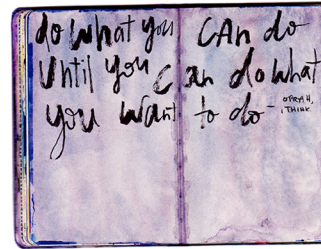 do what you can do
until you can do what
you want to do-
OPRAH,
I THINK.